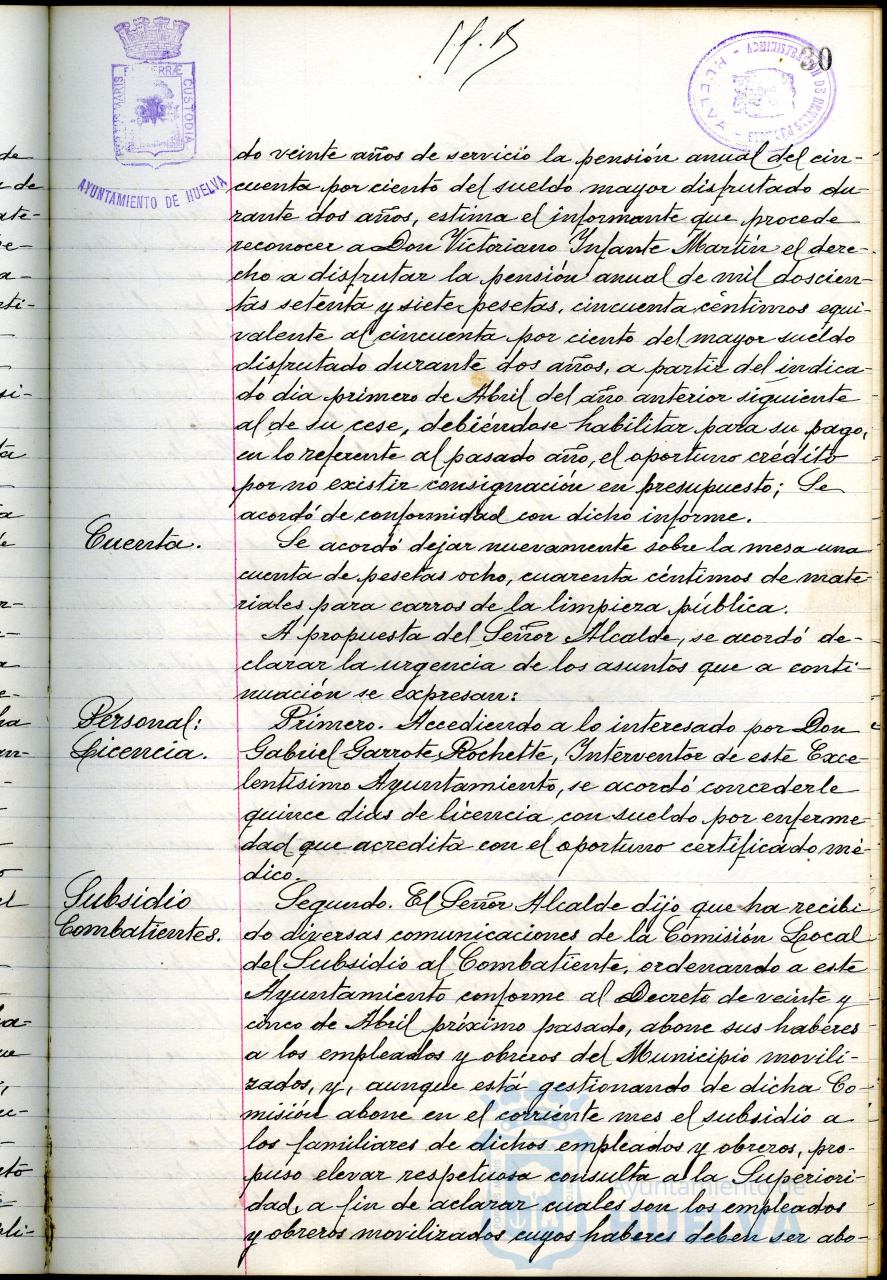 30
PORTUS MARIS ET TERRÆ CUSTODIA
AYUNTAMIENTO DE HUELVA
HUELVA
do veinte años de servicio la pensión anual del cin-
cuenta por ciento del sueldo mayor disfrutado du-
rante dos años, estima el informante que procede
reconocer a Don Victoriano Infante Martín el dere-
cho a disfrutar la pensión anual de mil doscien-
tas setenta y siete pesetas, cincuenta céntimos equi-
valente al cincuenta por ciento del mayor sueldo
disfrutado durante dos años, a partir del indica-
do día primero de Abril del año anterior siguiente
al de su cese, debiéndose habilitar para su pago,
en lo referente al pasado año, el oportuno crédito
por no existir consignación en presupuesto; Se
acordó de conformidad con dicho informe.
Cuenta.
Se acordó dejar nuevamente sobre la mesa una
cuenta de pesetas ocho, cuarenta céntimos de mate-
riales para carros de la limpieza pública.
A propuesta del Señor Alcalde, se acordó de-
clarar la urgencia de los asuntos que a conti-
nuación se expresan:
Personal:
Licencia.
Primero. Accediendo a lo interesado por Don
Gabriel Garrote Rochette, Interventor de este Exce-
lentísimo Ayuntamiento, se acordó concederle
quince días de licencia, con sueldo por enferme-
dad que acredita con el oportuno certificado mé-
dico.
Subsidio
Combatientes.
Segundo. El Señor Alcalde dijo que ha recibi-
do diversas comunicaciones de la Comisión Local
del Subsidio al Combatiente, ordenando a este
Ayuntamiento conforme al Decreto de veinte y
cinco de Abril próximo pasado, abone sus haberes
a los empleados y obreros del Municipio movili-
zados, y, aunque está gestionando de dicha Co-
misión abone en el corriente mes el subsidio a
los familiares de dichos empleados y obreros, pro-
puso elevar respetuosa consulta a la Superiori-
dad, a fin de aclarar cuales son los empleados
y obreros movilizados cuyos haberes deben ser abo-
Ayuntamiento de
HUELVA